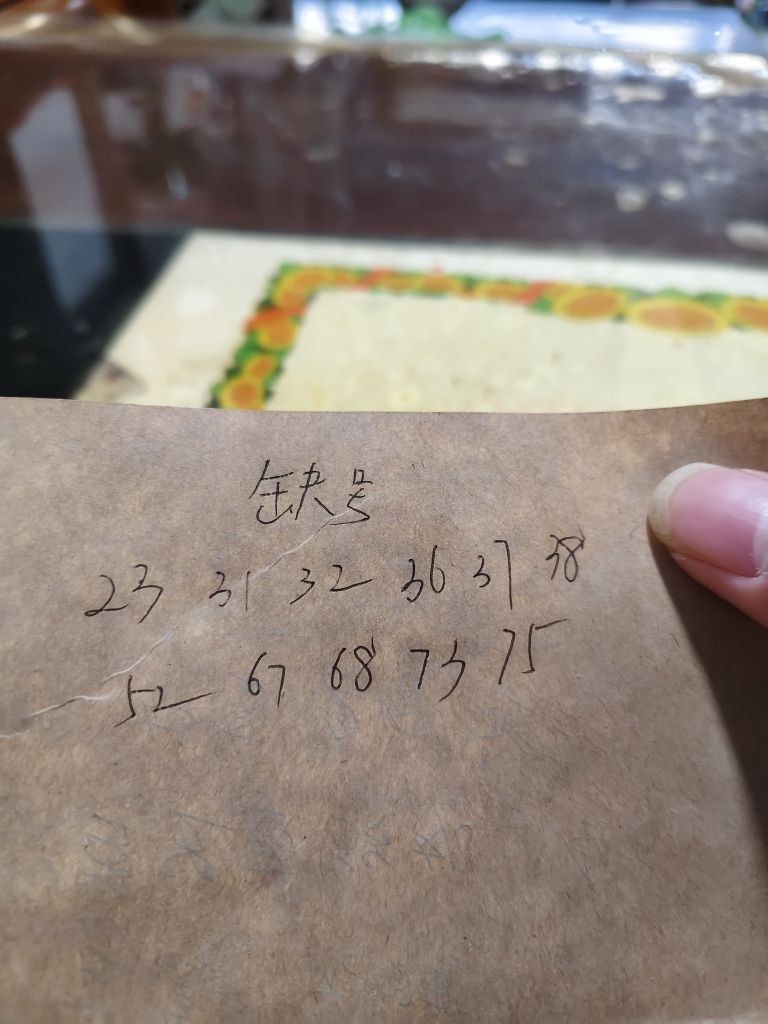 缺号
23 31 32 36 37 38
52 67 68 73 75